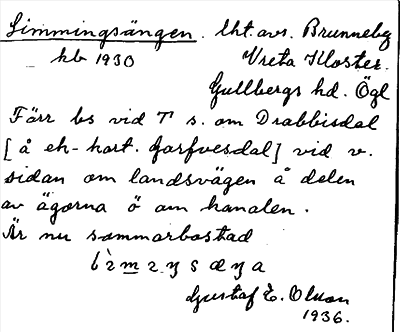 Simmingsängen. Lht. avs. Brunneby
kb 1930 Vreta Kloster.
Gullbergs hd. Ögl
Färr bs vid T s. om Drabbisdal
[å ek-kart. Garfvesdal] vid v.
sidan om landsvägen å delen
av ägorna ö om kanalen.
Är nu sommarbostad
Gustaf E. Olson
1936.